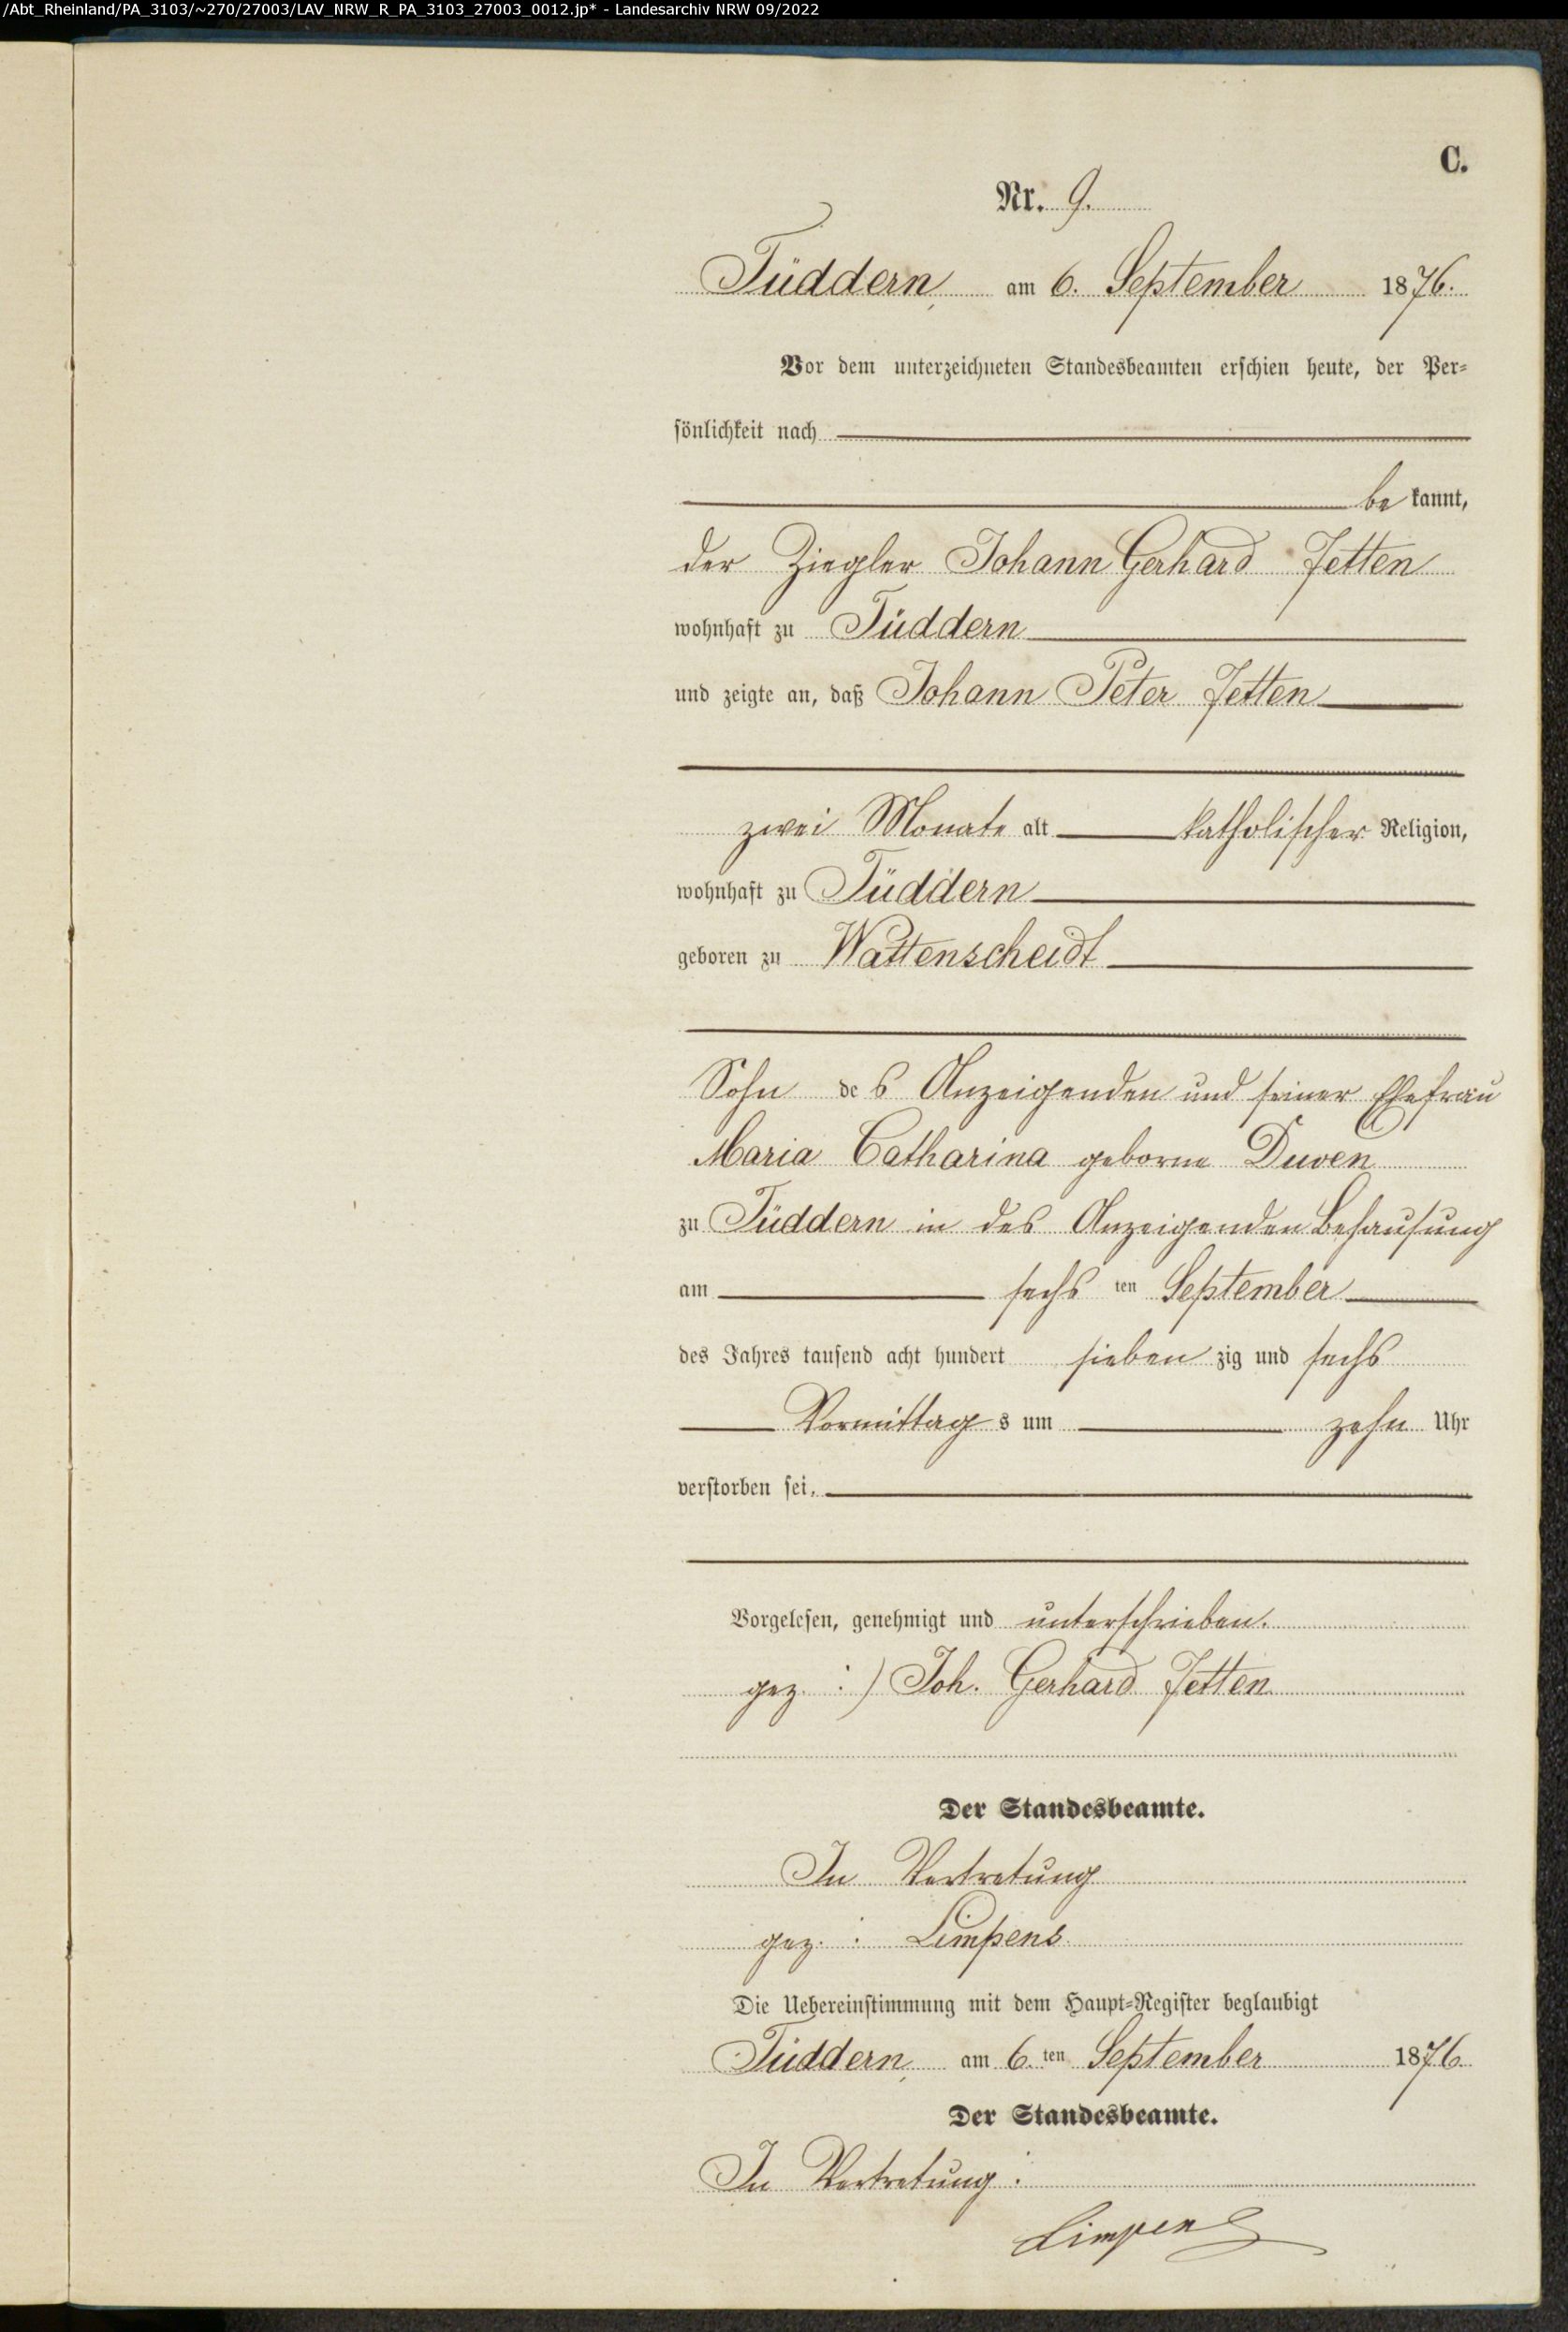 /Abt_Rheinland/PA_3103/~270/27003/LAV_NRW_R_PA_3103_27003_0012.jp* - Landesarchiv NRW 09/2022
C.
Nr. 9.
Tüddern, am 6. September 1876.
Vor dem unterzeichneten Standesbeamten erschien heute, der Per-
sönlichkeit nach
bekannt,
der Ziegler Johann Gerhard Jetten
wohnhaft zu Tüddern
und zeigte an, daß Johann Peter Jetten
zwei Monate alt katholischer Religion,
wohnhaft zu Tüddern
geboren zu Wattenscheidt
Sohn des Anzeigenden und seiner Ehefrau
Maria Catharina geborne Duven
zu Tüddern in des Anzeigenden Behausung
am sechsten September
des Jahres tausend acht hundert siebenzig und sechs
Vormittags um zehn Uhr
verstorben sei,
Vorgelesen, genehmigt und unterschrieben.
gez. :) Joh. Gerhard Jetten
Der Standesbeamte.
In Vertretung
gez. : Limpens
Die Uebereinstimmung mit dem Haupt-Register beglaubigt
Tüddern, am 6.ten September 1876
Der Standesbeamte.
In Vertretung :
Limpens